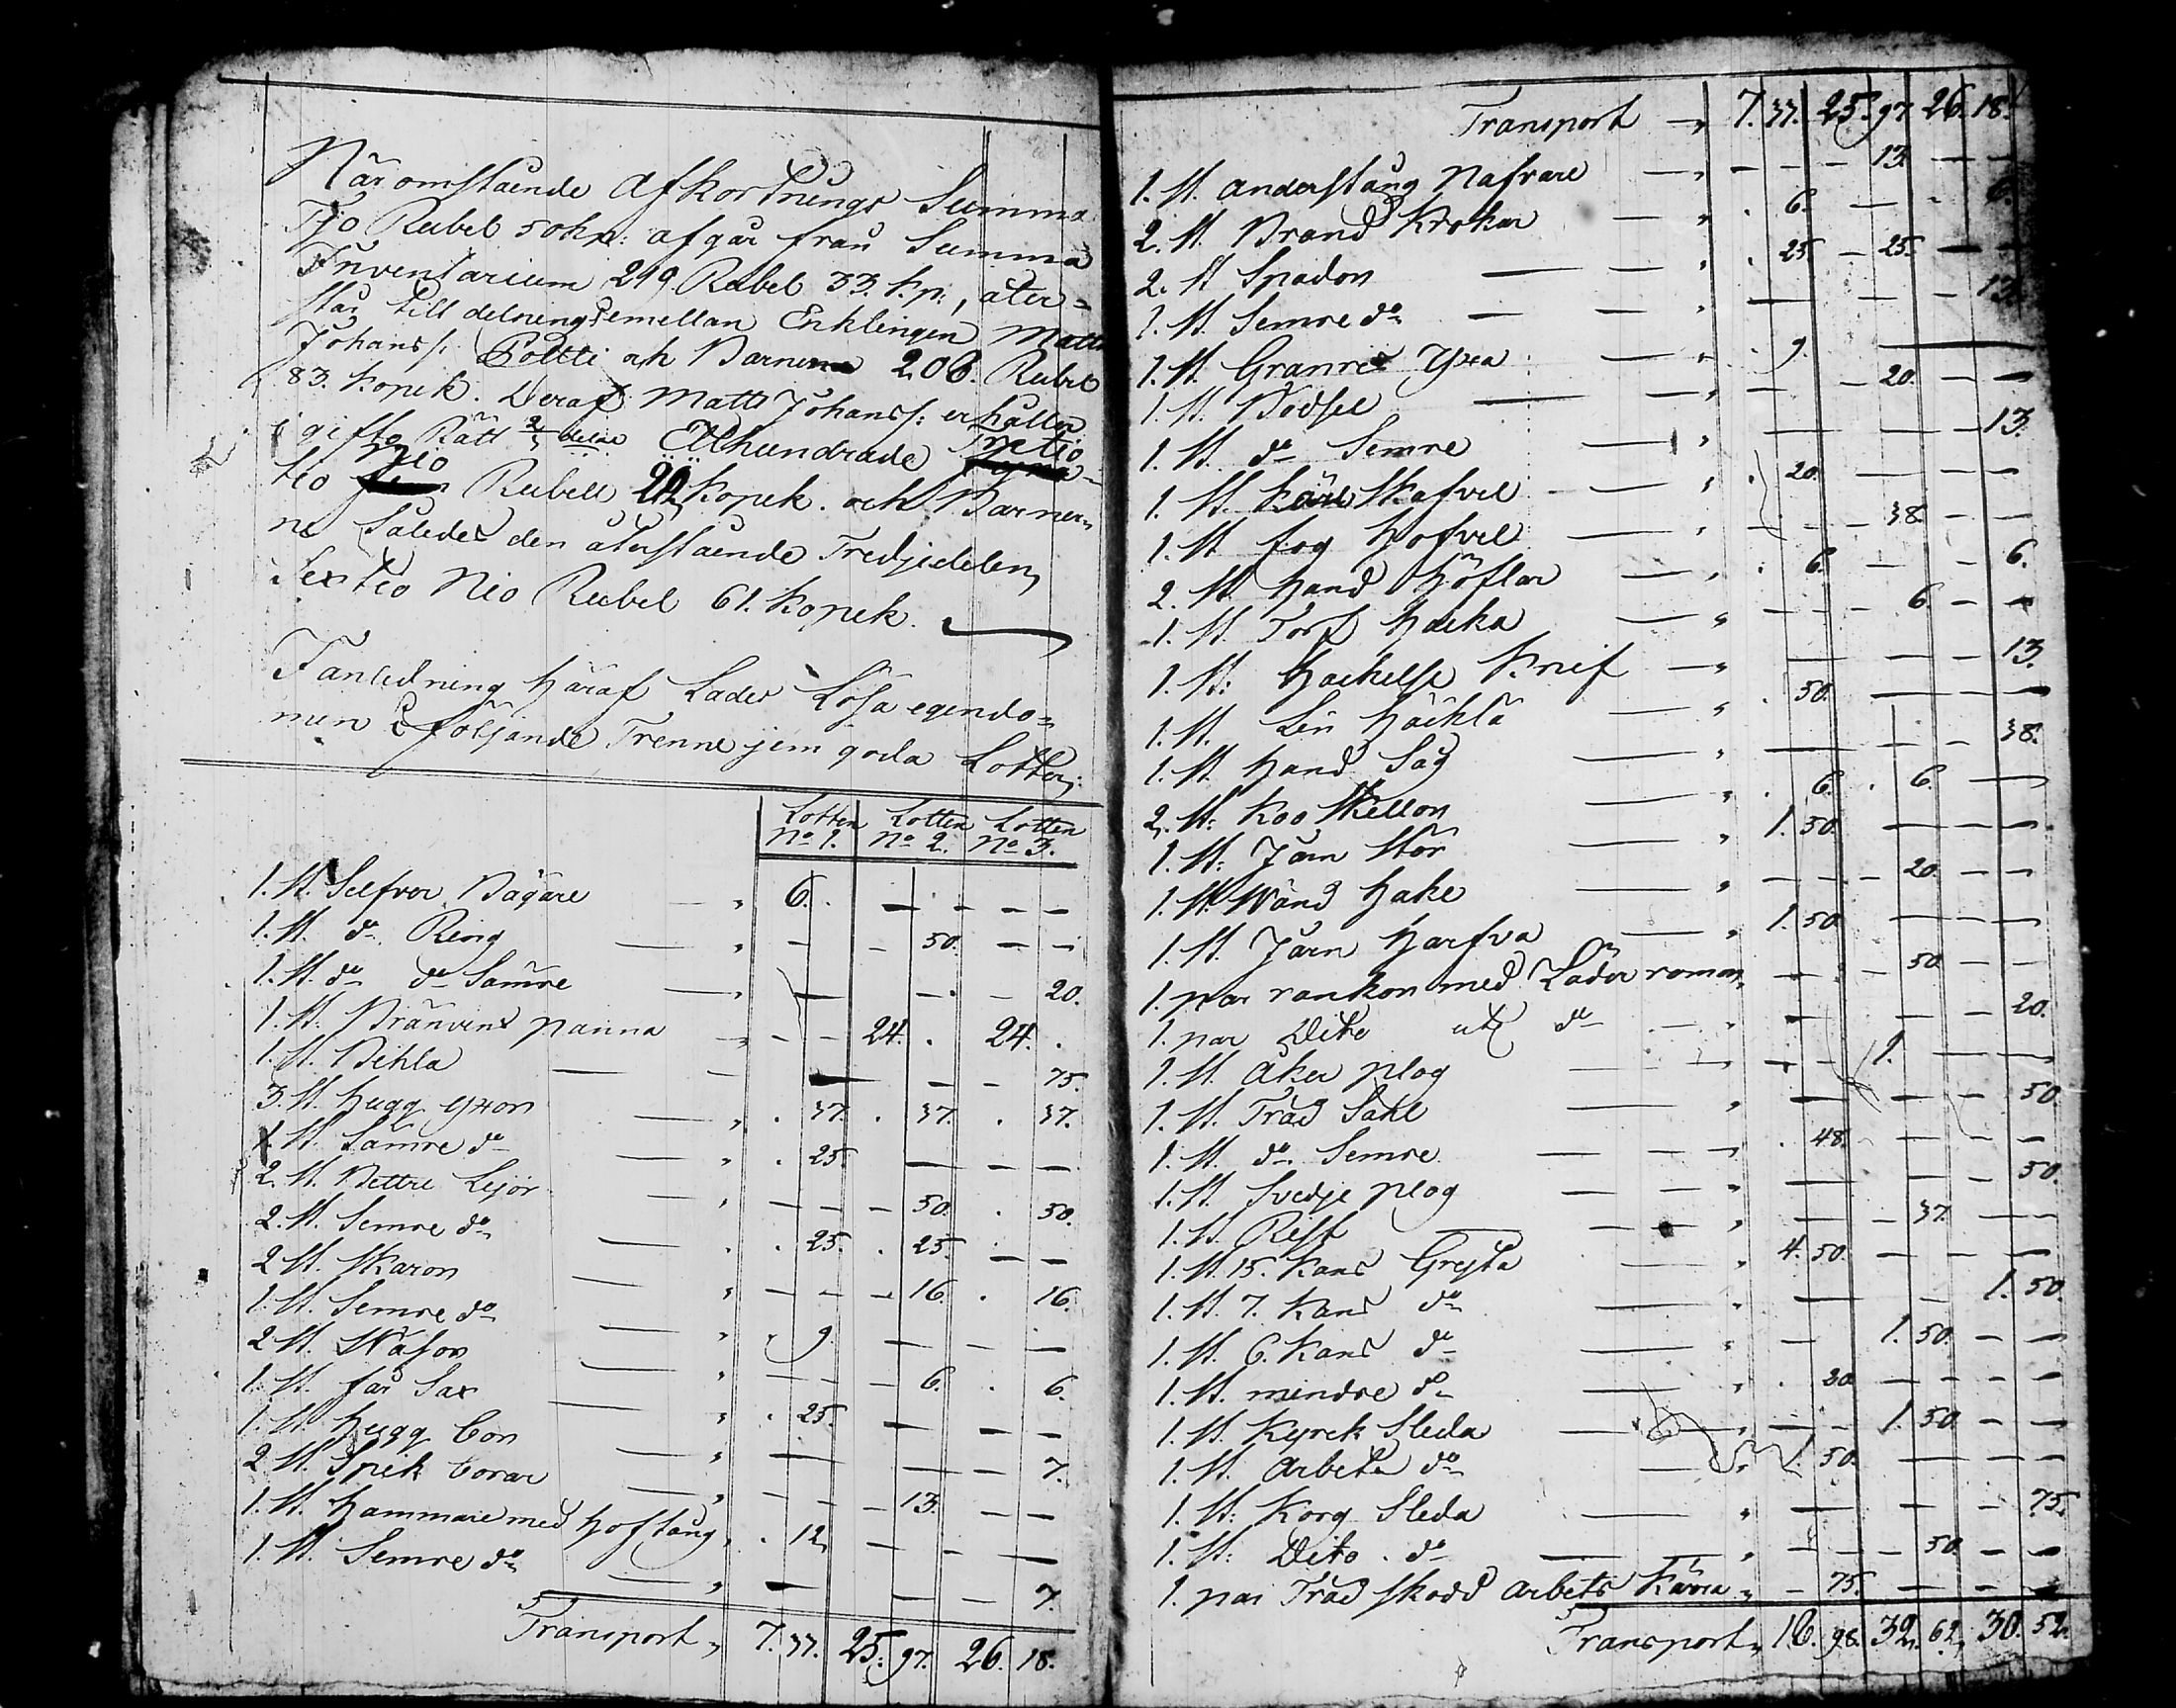 När omstående Afkortnings Summa
Tjo Rubel 50 kp: afgår från Summa
Inventarium 219. Rubel 33. kp:, åter=
står till delning emellan Enklingen Matts
Johanss: Poltti och Barnen 206. Rubel
83. Kopek. Deraf Matts Johanss: erhåller
i gifto Rätt 2/3 delar Etthundrade Tretio
tio nio Rubell 22 Kopek. och Barner-
ne Således den återstående Tredjedelen
Sextio Nio Rubel 61. Kopek.
I anledning häraf Lades Lösa egendo=
men i följande Trenne jem goda Lotter;
Lotten No 1. Lotten No 2. Lotten No 3.
1. St. Silfver Bägare 6.
1. St. do Ring 50.
1. St. do do Sämre 20.
1. St. Bränvins panna 24. 24.
1. St. Bihla 75.
3. St. Hugg yxor 37. 37. 37.
1. St. Sämre do 25.
2. St. Bettre Lejor 50. 50.
2. St. Semre do 25. 25.
2 St. Skäror 16. 16.
1. St. Semre do 9.
2 St. 6. 6.
1. St. får Sax 25.
1. St. Hugg 7.
2 St. Spik borar 13.
1. St. Hammare med Hoftång 12
1. St. Semre do 7.
Transport 7. 37. 25. 97. 26. 18.
Transport 7. 37. 25. 97 26. 18.
1. St. Nafvare 13.
2. St. Brand Krokar 6. 6.
2. St Spadon 25. 25.
1. St. Semre do 13.
1. St. Yxa 9.
1. St. 20.
1. St. do Semre 13.
1. St. 20.
1. St fog Hofvel 38.
2. St. Hand 6. 6.
1. St. Torf Hacka 6
1. St: Hackelse Knif 13.
1. St. Lin Häckla 50.
1. St. Hand Såg 38.
2. St: Koo Skellor 6. 6.
1. St: Järn Stör 1. 50.
1. St. Hake 20.
1. St. Järn Harfva 1. 50.
1. par rankor med Läder 50.
1. par Dito utj do 20.
1. St. Åker plog 1.
1. St. Träd 50.
1. St. do Semre 48.
1. St. Svedje plog 50
1. St. Rist 37
1. St. 15. Kans Gryta 4. 50.
1. St. 7. Kans do 1. 50.
1. St. 6. Kans do 1. 50.
1. St. mindre do 20
1. St. Kyrck Släda 1. 50.
1. St. Arbets do 1. 50.
1. St: Korg Släda 75.
1. St: Dito do 50.
1. par Träd skodd arbets Kärra 75.
Transport 16. 98. 32. 62 30. 52.